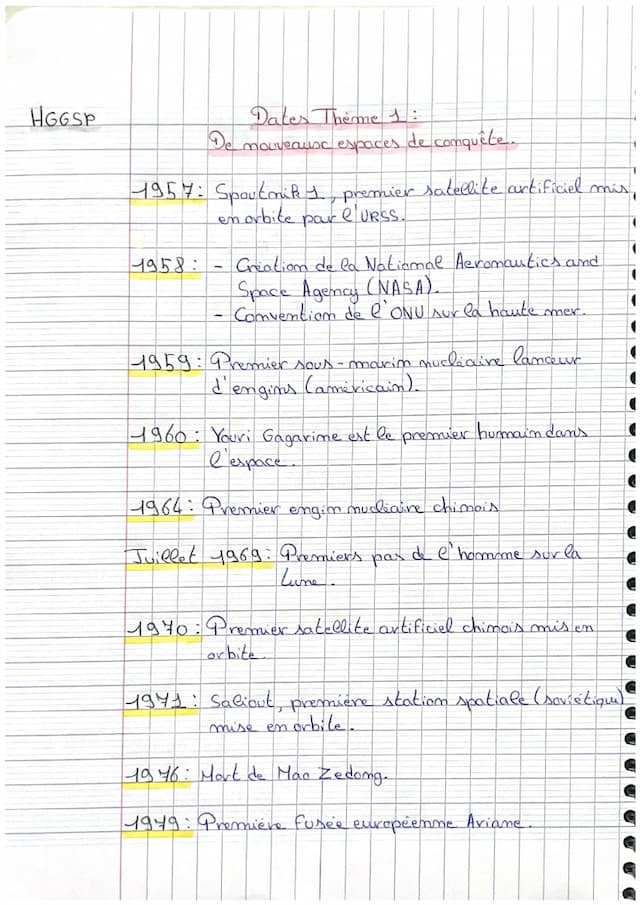 HGGSP
Dates Thème 1 :
De nouveaux espaces de conquête.
1957 : Spoutnik 1, premier satellite artificiel mis
en orbite par l'URSS.
1958 : - Création de la National Aeronautics and
Space Agency (NASA).
- Convention de l'ONU sur la haute mer.
1959 : Premier sous-marin nucléaire lanceur
d'engins (américain).
1960 : Youri Gagarine est le premier humain dans
l'espace.
1964 : Premier engin nucléaire chinois
Juillet 1969 : Premiers pas de l'homme sur la
Lune.
1970 : Premier satellite artificiel chinois mis en
orbite.
1971 : Saliout, première station spatiale (soviétique)
mise en orbite.
1976 : Mort de Mao Zedong.
1979 : Première fusée européenne Ariane.